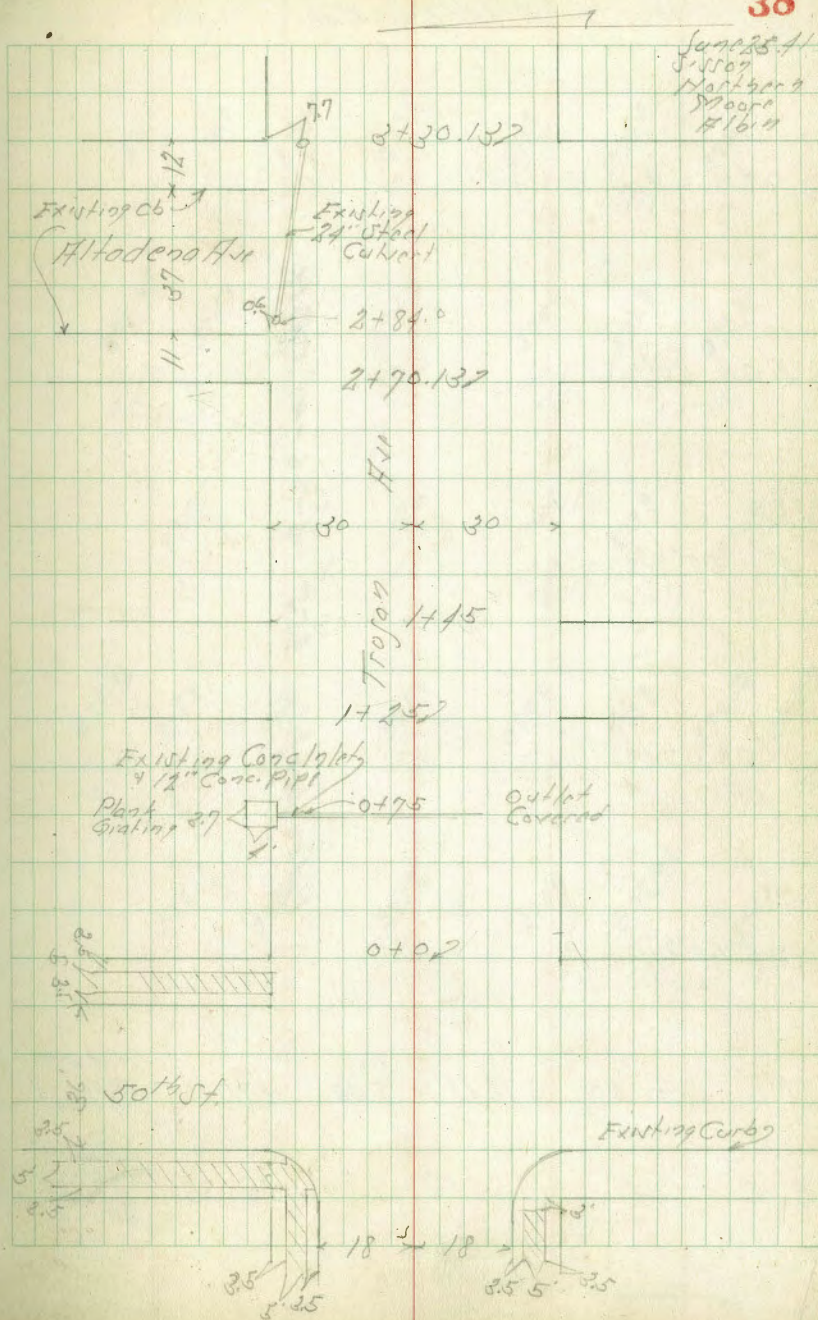 38
June 25.41
Sisson
Northern
Moore
Albin
7.7
3+30.13
12
Existing Cb
Existing
24" Steel
Culvert
Altadena Ave
37
0.6
2+84.0
11
2+70.13
Ave
30 30
Trojan
1+45
1+25
Existing Conc Inlet
& 12" Conc. Pipe
Plank
Grating 3.7
4'
0+75
Outlet
Covered
0+0
2.5
5
3.5
36
50th St.
3.5
5
2.5
Existing Curb
3'
18 18
3.5
5' 3.5
3.5 5' 3.5